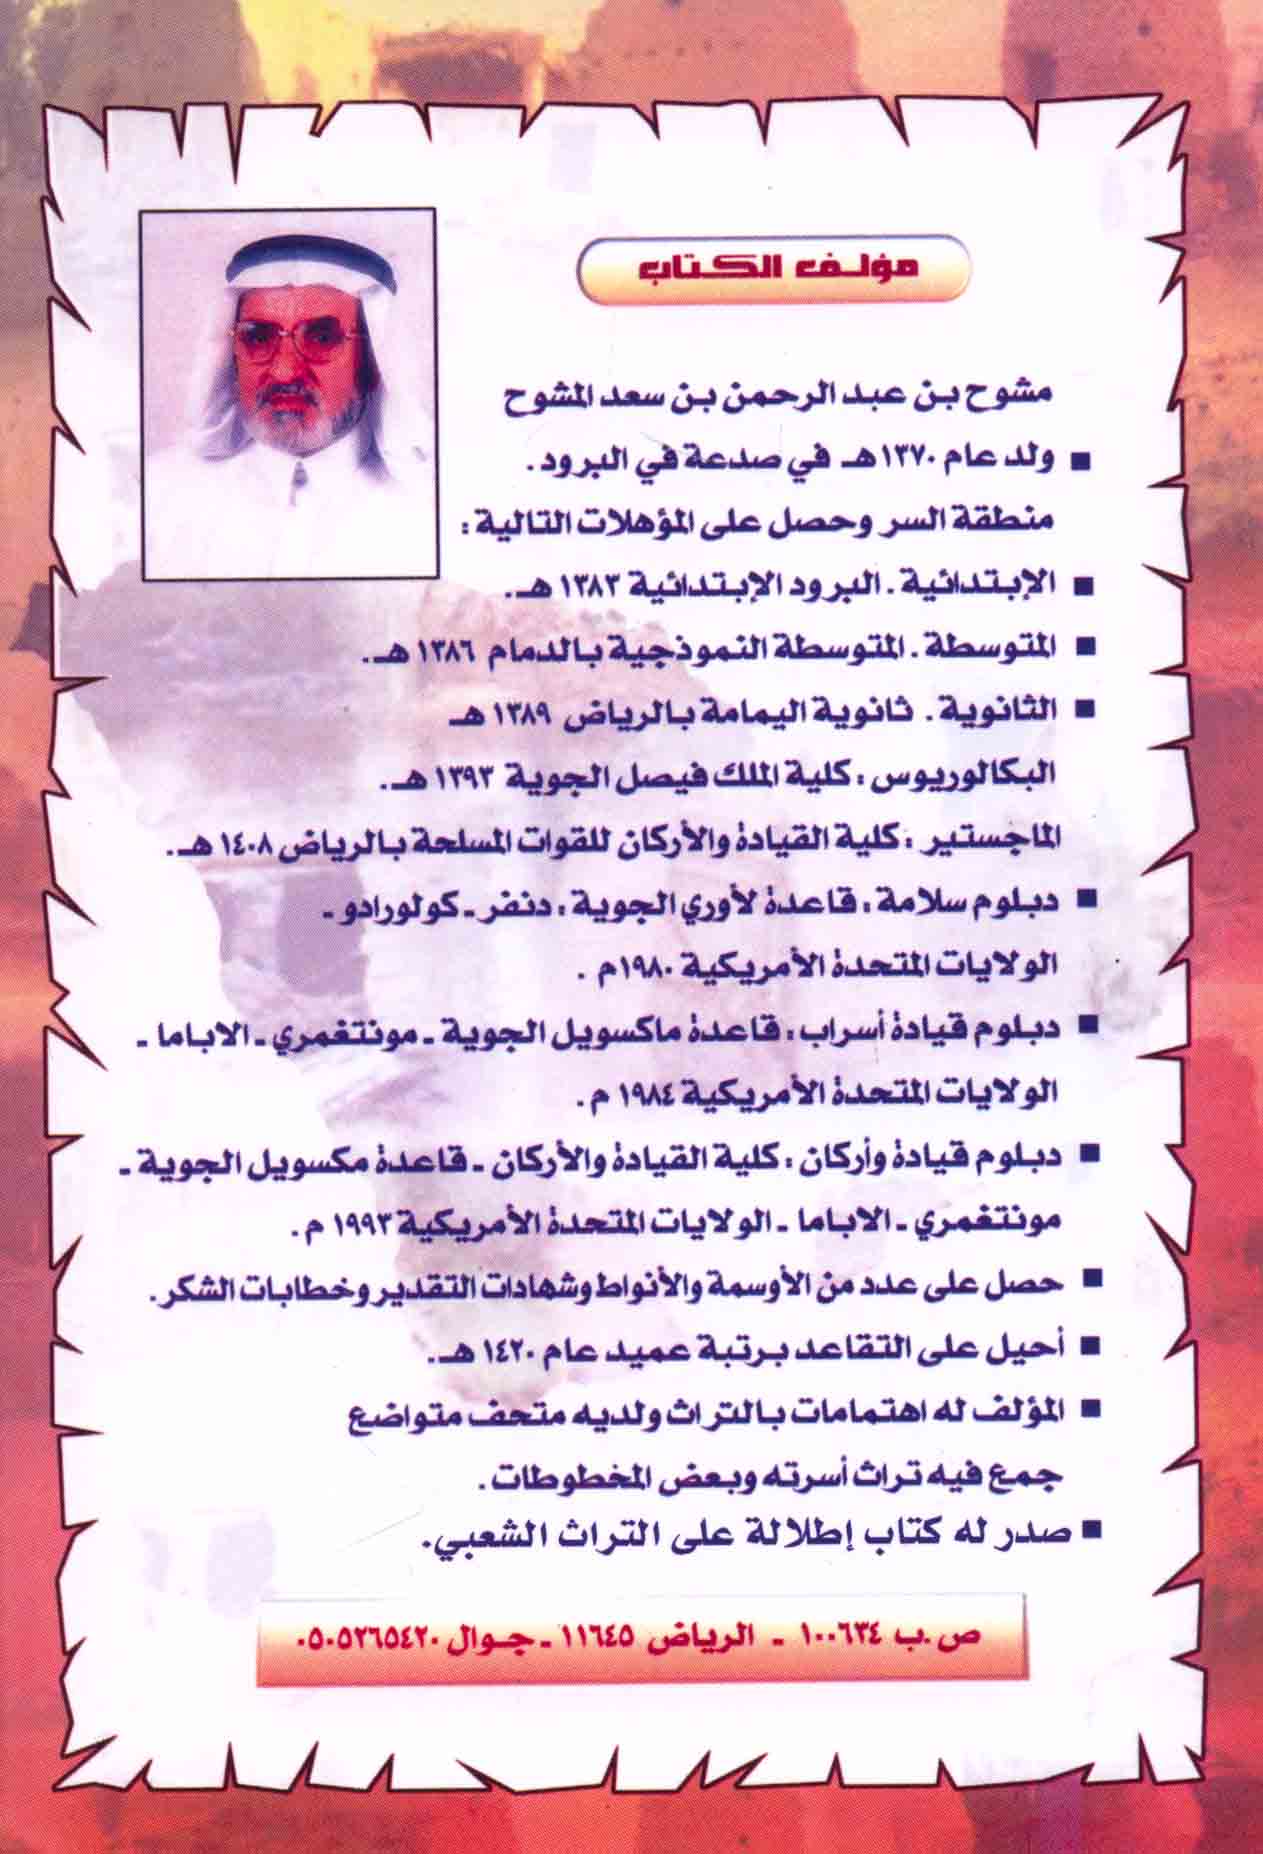 مؤلف الكتاب
مشوح بن عبد الرحمن بن سعد المشوح
■ ولد عام ١٣٧٠هـ في صدعة في البرود.
منطقة السر وحصل على المؤهلات التالية :
■ الإبتدائية . البرود الإبتدائية ١٣٨٣ هـ.
■ المتوسطة . المتوسطة النموذجية بالدمام ١٣٨٦ هـ.
■ الثانوية . ثانوية اليمامة بالرياض ١٣٨٩ هـ
البكالوريوس : كلية الملك فيصل الجوية ١٣٩٣ هـ.
الماجستير : كلية القيادة والأركان للقوات المسلحة بالرياض ١٤٠٨ هـ.
■ دبلوم سلامة : قاعدة لأوري الجوية : دنفر - كولورادو -
الولايات المتحدة الأمريكية ١٩٨٠م .
■ دبلوم قيادة أسراب : قاعدة ماكسويل الجوية - مونتغمري - الاباما -
الولايات المتحدة الأمريكية ١٩٨٤ م.
■ دبلوم قيادة وأركان : كلية القيادة والأركان - قاعدة مكسويل الجوية -
مونتغمري - الاباما - الولايات المتحدة الأمريكية ١٩٩٣ م.
■ حصل على عدد من الأوسمة والأنواط وشهادات التقدير وخطابات الشكر.
■ أحيل على التقاعد برتبة عميد عام ١٤٢٠ هـ.
■ المؤلف له اهتمامات بالتراث ولديه متحف متواضع
جمع فيه تراث أسرته وبعض المخطوطات.
■ صدر له كتاب إطلالة على التراث الشعبي.
ص.ب ١٠٠٦٣٤ - الرياض ١١٦٤٥ - جوال ٠٥٠٥٢٦٥٤٢٠